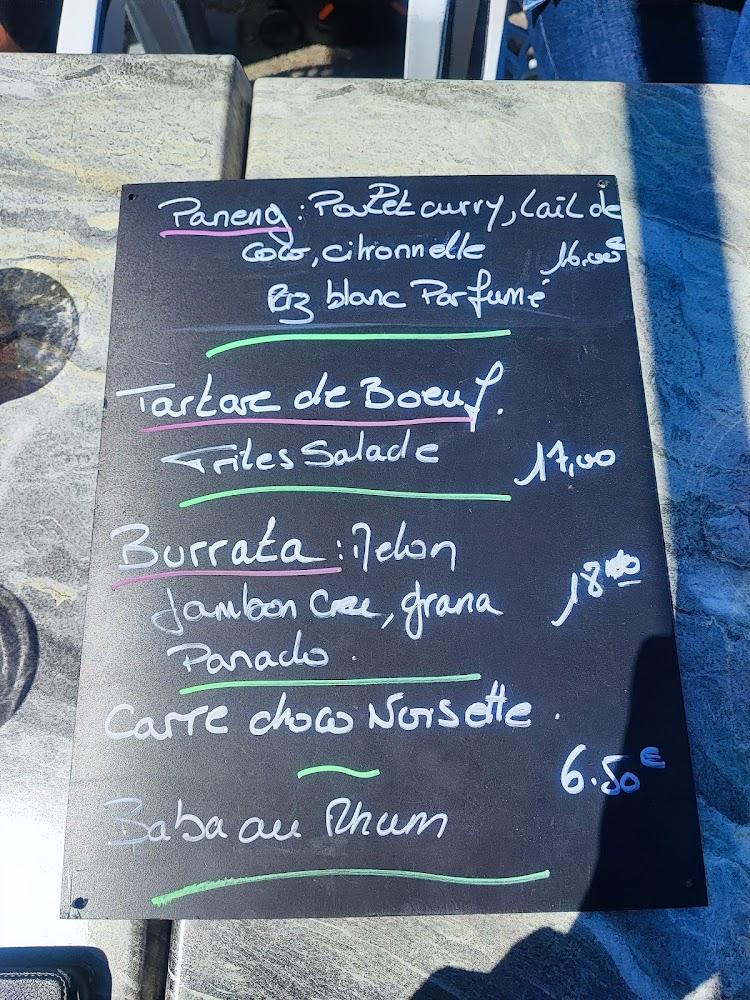 Paneng : Poulet curry, lait de
coco, citronnelle 16.00€
Riz blanc Parfumé
Tartare de Boeuf.
Frites Salade 17,00
Burrata : Melon
Jambon Cru, grana 18.00
Panado.
Carré choco Noisette.
6.50€
Baba au Rhum